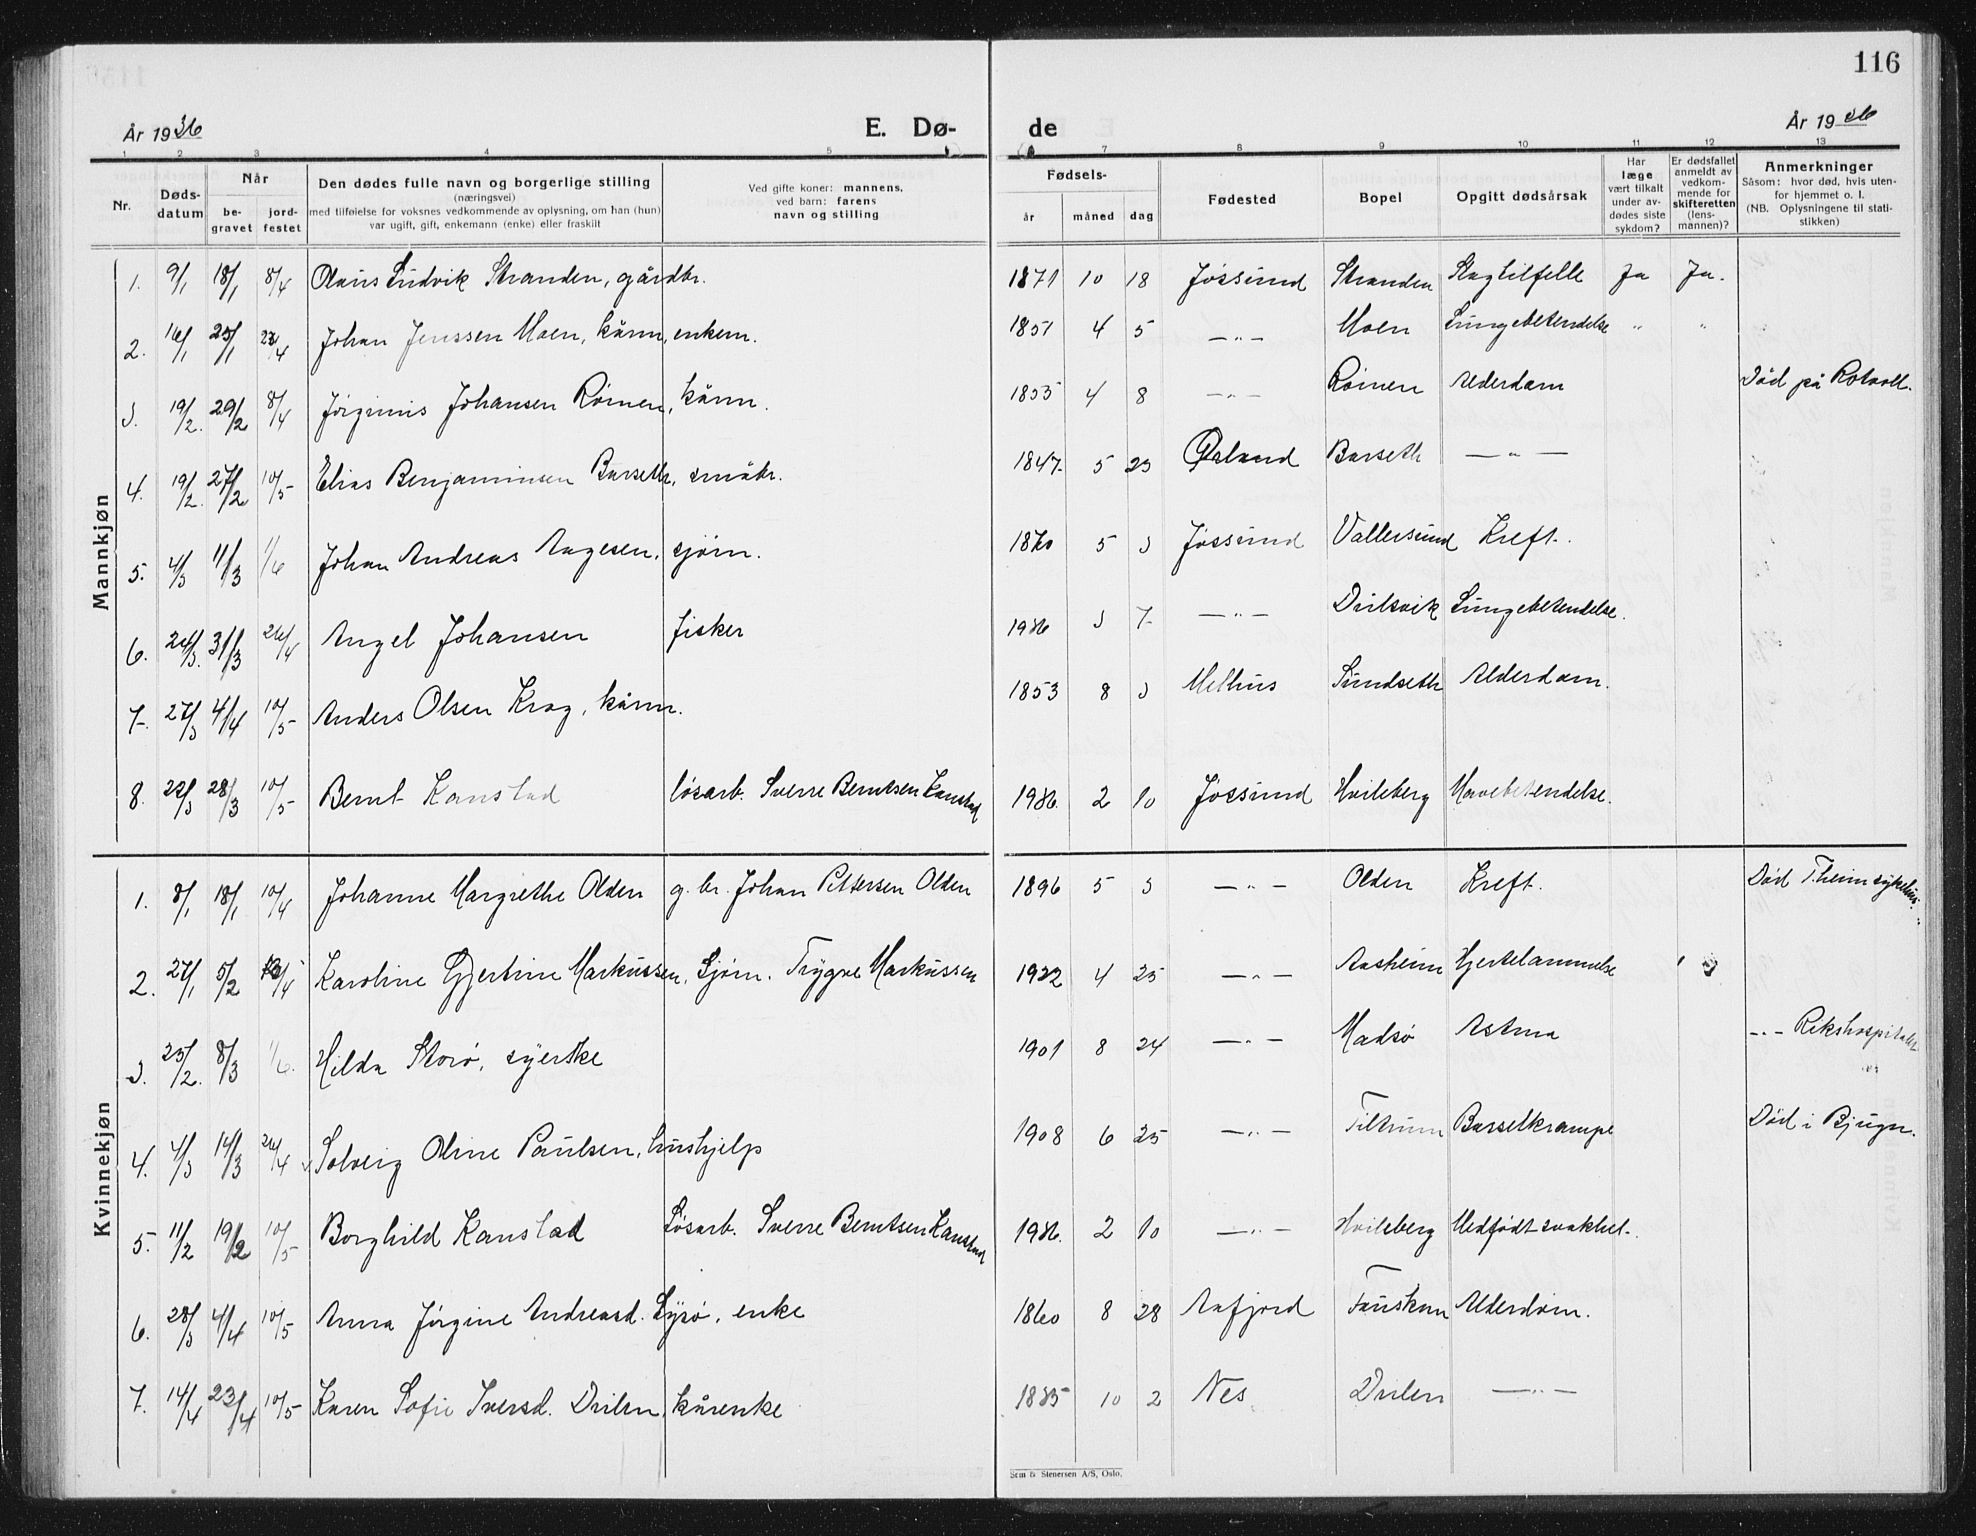 116
År 1936 E. Dø- de År 1936
1 2 3 4 5 7 8 9 10 11 12 13
Nr. Døds- datum Når be- gravet jord- festet Den dødes fulle navn og borgerlige stilling (næringsvei) med tilføielse for voksnes vedkommende av oplysning, om han (hun) var ugift, gift, enkemann (enke) eller fraskilt Ved gifte koner: mannens, ved barn: farens navn og stilling Fødsels- år måned dag Fødested Bopel Opgitt dødsårsak Har læge vært tilkalt under av- dødes siste sykdom? Er dødsfallet anmeldt av vedkom- mende for skifteretten (lens- mannen)? Anmerkninger Såsom: hvor død, hvis uten- for hjemmet o. l. (NB. Oplysningene til stati- stikken)
Mannkjøn
1. 9/1 18/1 8/4 Olaus Ludvik Stranden, gårdbr. 1871 10 18 Jøssund Stranden Slagtilfelle Ja Ja.
2. 16/1 25/1 23/4 Johan Jenssen Moen, kårm, enkem. 1851 4 5 —„— Moen Lungebetendelse „ „
3. 19/2. 29/2 8/4 Jørginus Johansen Rømen, kårm. 1853 4 8 —„— Rømen Alderdom Död på Rotvoll.
4. 19/2. 27/2 10/5 Elias Benjaminsen Barseth, småbr. 1847 5 23 Ørland Barseth —„—
5. 4/3 11/3 1/6 Johan Andreas Aagesen, sjøm. 1870 5 3 Jøssund Vallersund Kreft.
6. 24/3. 31/3 26/4 Angel Johansen fisker 1936 3 7 —„— Dulsvik Lungebetendelse.
7. 27/3 4/4 10/5 Anders Olsen Krog, kårm. 1853 8 3 Melhus Sundseth Alderdom.
8. 22/3 28/3 10/5 Bernt Kanstad løsarb. Sverre Berntsen Kanstad 1936. 2 10 Jøssund Hvileberg Marvebetendelse.
Kvinnekjøn
1. 8/1 18/1 10/4 Johanne Margrethe Olden g. br. Johan Pettersen Olden 1896 5 3 —„— Olden Kreft. Död T.heim sykehus.
2. 27/1 5/2 /4 Karoline Gjertine Markussen, Sjøm. Trygve Markussen 1922 4 25 —„— Aasheim Hjertelammelse
3. 23/2. 8/3 1/6. Hilda Storø, syerske 1901 8 24 —„— Madsø Astma —„— Rikshospitalet
4. 4/3 14/3 26/4 Solveig Oline Paulsen, hushjelp 1908 6 25 —„— Tiltrum Barselkrampe Död i Bjugn.
5. 11/2 19/2 10/5 Borghild Kanstad Løsarb. Sverre Berntsen Kanstad 1936. 2 10 —„— Hvileberg Medfødt svakhet.
6. 28/3 4/4 10/5 Anna Jørgine Andreasd. Lysø, enke 1860 8 28 Aafjord Tauskan Alderdom.
7. 14/4 23/4 10/5 Karen Sofie Iversd. Dulen, kårenke 1835 10 2 Nes Dulen —„—
Sem & Stenersen A/S, Oslo.